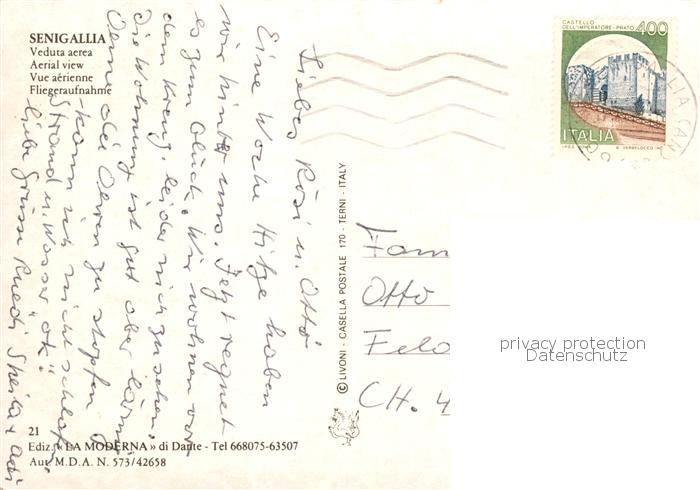 SENIGALLIA
Veduta aerea
Aerial view
Vue aérienne
Fliegeraufnahme
CASTELLO
DELL'IMPERATORE - PRATO 400
ITALIA
Liebes Rösi u. Otto
Eine Woche Hitze haben
wir hinter uns. Jetzt regnet
es zum Glück. Wir wohnen vor
dem Kreuz, leider nicht zu sehen.
Die Wohnung ist gut aber lärmig
Ohne die Ohren zu stopfen
kann ich nicht schlafen
Strand u. Wasser "ok".
liebe Grüsse Ruedi Sheila +
© LIVONI - CASELLA POSTALE 170 - TERNI - ITALY
Fam
Otto
Feld
CH. 4
privacy protection
Datenschutz
21
Ediz. «LA MODERNA» di Dante - Tel 668075-63507
Aut. M.D.A. N. 573/42658